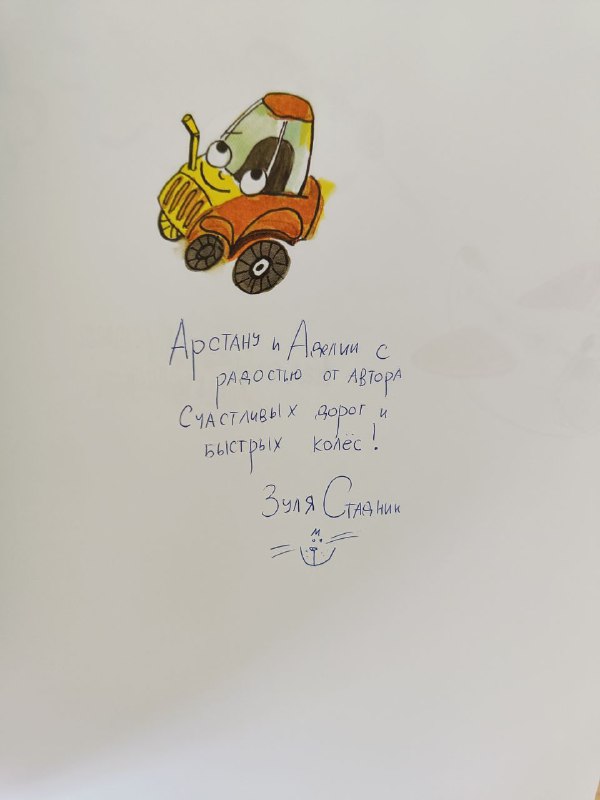 Арстану и Аделии с
радостью от автора
Счастливых дорог и
быстрых колёс!
Зуля Стадник